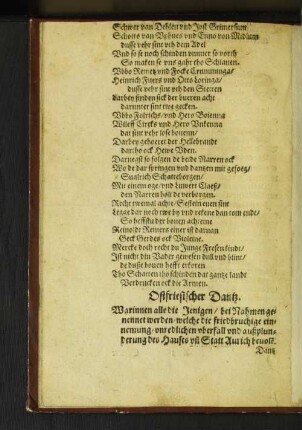 Schwer van Dehlen vnd Just Grimersum
Schotto van Vphues vnd Enno van Midlum
dusse vehr sint vth dem Adel
Vnd so se noch schinden nimmer so vorth
So maken se vns gahr tho Schlauen.
Vbbo Remetz vnd Focke Ennunninga/
Heinrich Friers vnd Otto Loringa/
dusse vehr sint vth den Stetten
darby finden sick der iueren acht
darunter sint twe gecken.
Vbbo Folrichs/ vnd Hero Boienna
Wilest Circks vnd Hero Vnkenna
dar sint vehr lose bouenn/
Darbey gehoeret der Hellebrandt
dartho ock Hewe Vden.
Darnegst so folgen de beide Narren ock
Wo de dar springen vnd dantzen mit gefog/
Snatrich Schatteborgen/
Mit einem oge/ vnd linwert Claeß/
den Narren holt de verborgen.
Nochtzwemal achte/ Sestein euen sint
Legge dar noch twe by vnd rekene dan tom end/
So heffstu der bouen achteine
Reinolde Reiners einer ist darvan
Gock Gerdes ock Violeine.
Mercke doch recht du Junge Fresenkindt/
Ist nicht din Vader gewesen dull vnd blint/
de dusse bouen hefft erkoren
Tho Schatten tho schinden dat gantze landt
Verdrucken ock die Armen.
Ostfriesischer Dantz.
Warinnen alle die Jenigen/ bei Nahmen ge-
nennet werden/ welche die friedbruchige ein-
nemung/ vnredlichen vberfall vnd außplun-
derung des Hauses vñ Statt Aurich beuolt.
Dantz